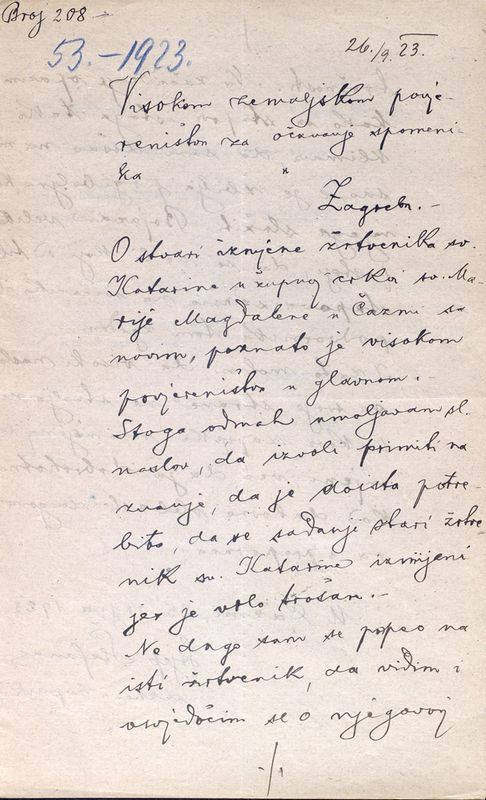 Broj 208 –
53. – 1923.
26./9. 23.
Visokom zemaljskom povje-
reništvu za očuvanje spomeni-
ka
Zagreb. –
O stvari izmjene žrtvenika sv.
Katarine u župnoj crkvi sv. Ma-
rije Magdalene u Čazmi sa
novim, poznato je visokom
povjereništvu u glavnom.
Stoga odmah umoljavam sl.
naslov, da izvoli primiti na
znanje, da je doista potre-
bito, da se sadanji stari žrtve-
nik sv. Katarine izmijeni
jer je vrlo trošan. –
Ne dugo sam se popeo na
isti žrtvenik, da vidim i
osvjedočim se o njegovoj